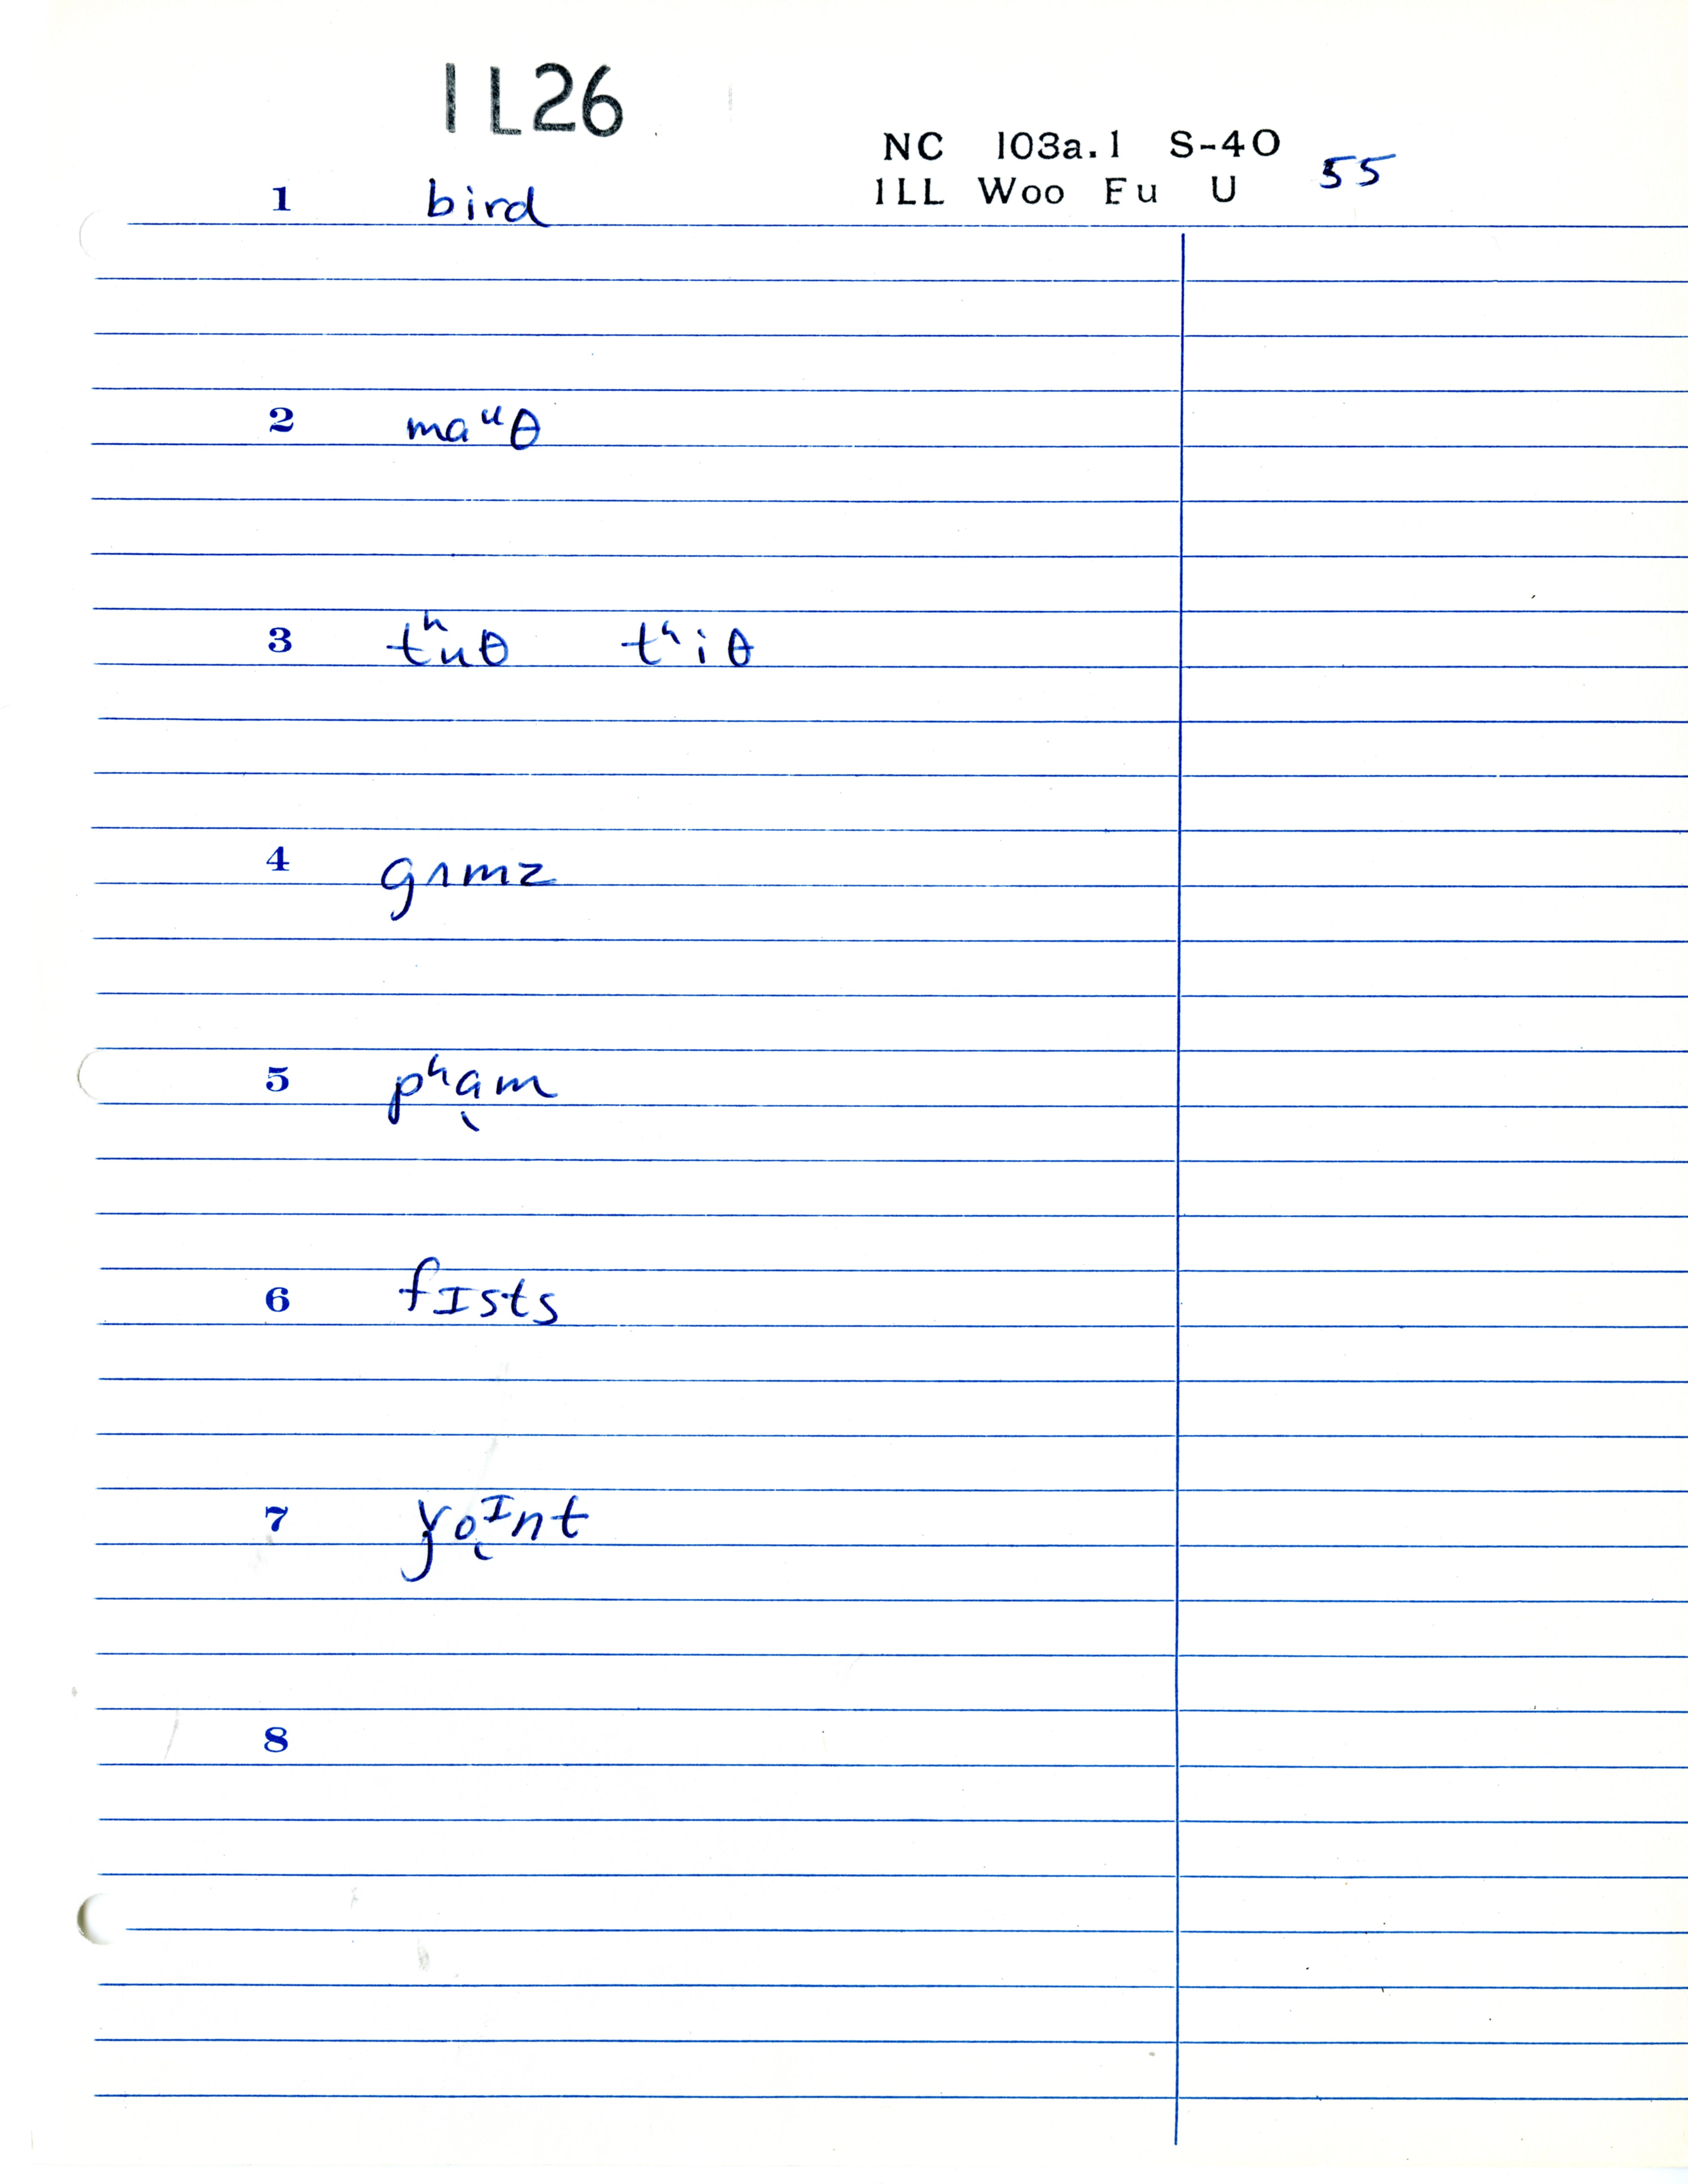 1L26
NC 103a.1 S-40 55
1LL Woo Fu U
1 bird
2 maᵘθ
3 tʰuθ tʰiθ
4 gʌmz
5 pʰa̘m
6 fɪsts
7 ɣo̜ᶦnt
8